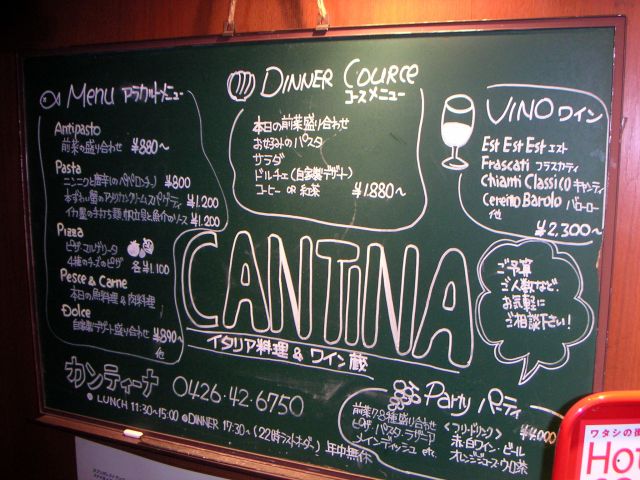 Menu アラカルトメニュー
Antipasto
前菜の盛り合わせ ¥880~
Pasta
ニンニクと唐辛子のペペロンチーノ ¥800
本ずわい蟹のアメリカンクリームスパゲティ ¥1.200
イカ墨の手打ち麺 帆立貝と魚介のソース ¥1.200
Pizza
ピザ マルゲリータ
4種のチーズのピザ 各¥1.100
Pesce & Carne
本日の魚料理 & 肉料理
Dolce
自家製デザート盛り合わせ ¥890~
他
DINNER COURCE
コースメニュー
本日の前菜盛り合わせ
おすすみのパスタ
サラダ
ドルチェ(自家製デザート)
コーヒー OR 紅茶 ¥1.880~
VINO ワイン
Est Est Est エスト
Frascati フラスカティ
Chianti Classico キャンティ
Cereino Barolo バローロー
他
¥2,300~
CANTINA
イタリア料理 & ワイン蔵
ご予算
ご人数など
お気軽に
ご相談下さい!
カンティーナ 0426-42-6750
● LUNCH 11:30~15:00 ● DINNER 17:30~(22時ラストオーダー) 年中無休
Party パーティ
前菜7.8種盛り合わせ <フリードリンク> ¥4000
ピザ、パスタ、ラザーニア 赤・白ワイン・ビール
メインディッシュ etc. オレンジジュース・ウーロン茶
ワタシの街
Hot